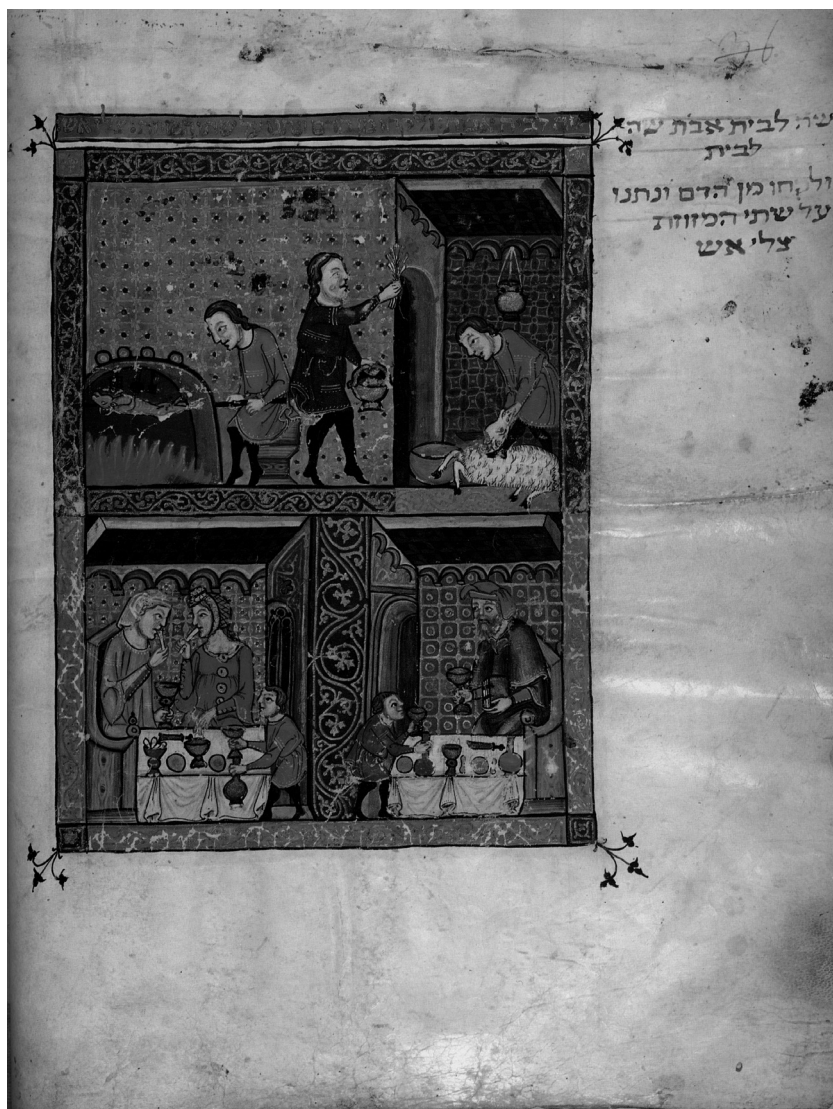 שה לבית אבת שה
לבית
ולקחו מן הדם ונתנו
על שתי המזוזת
צלי אש